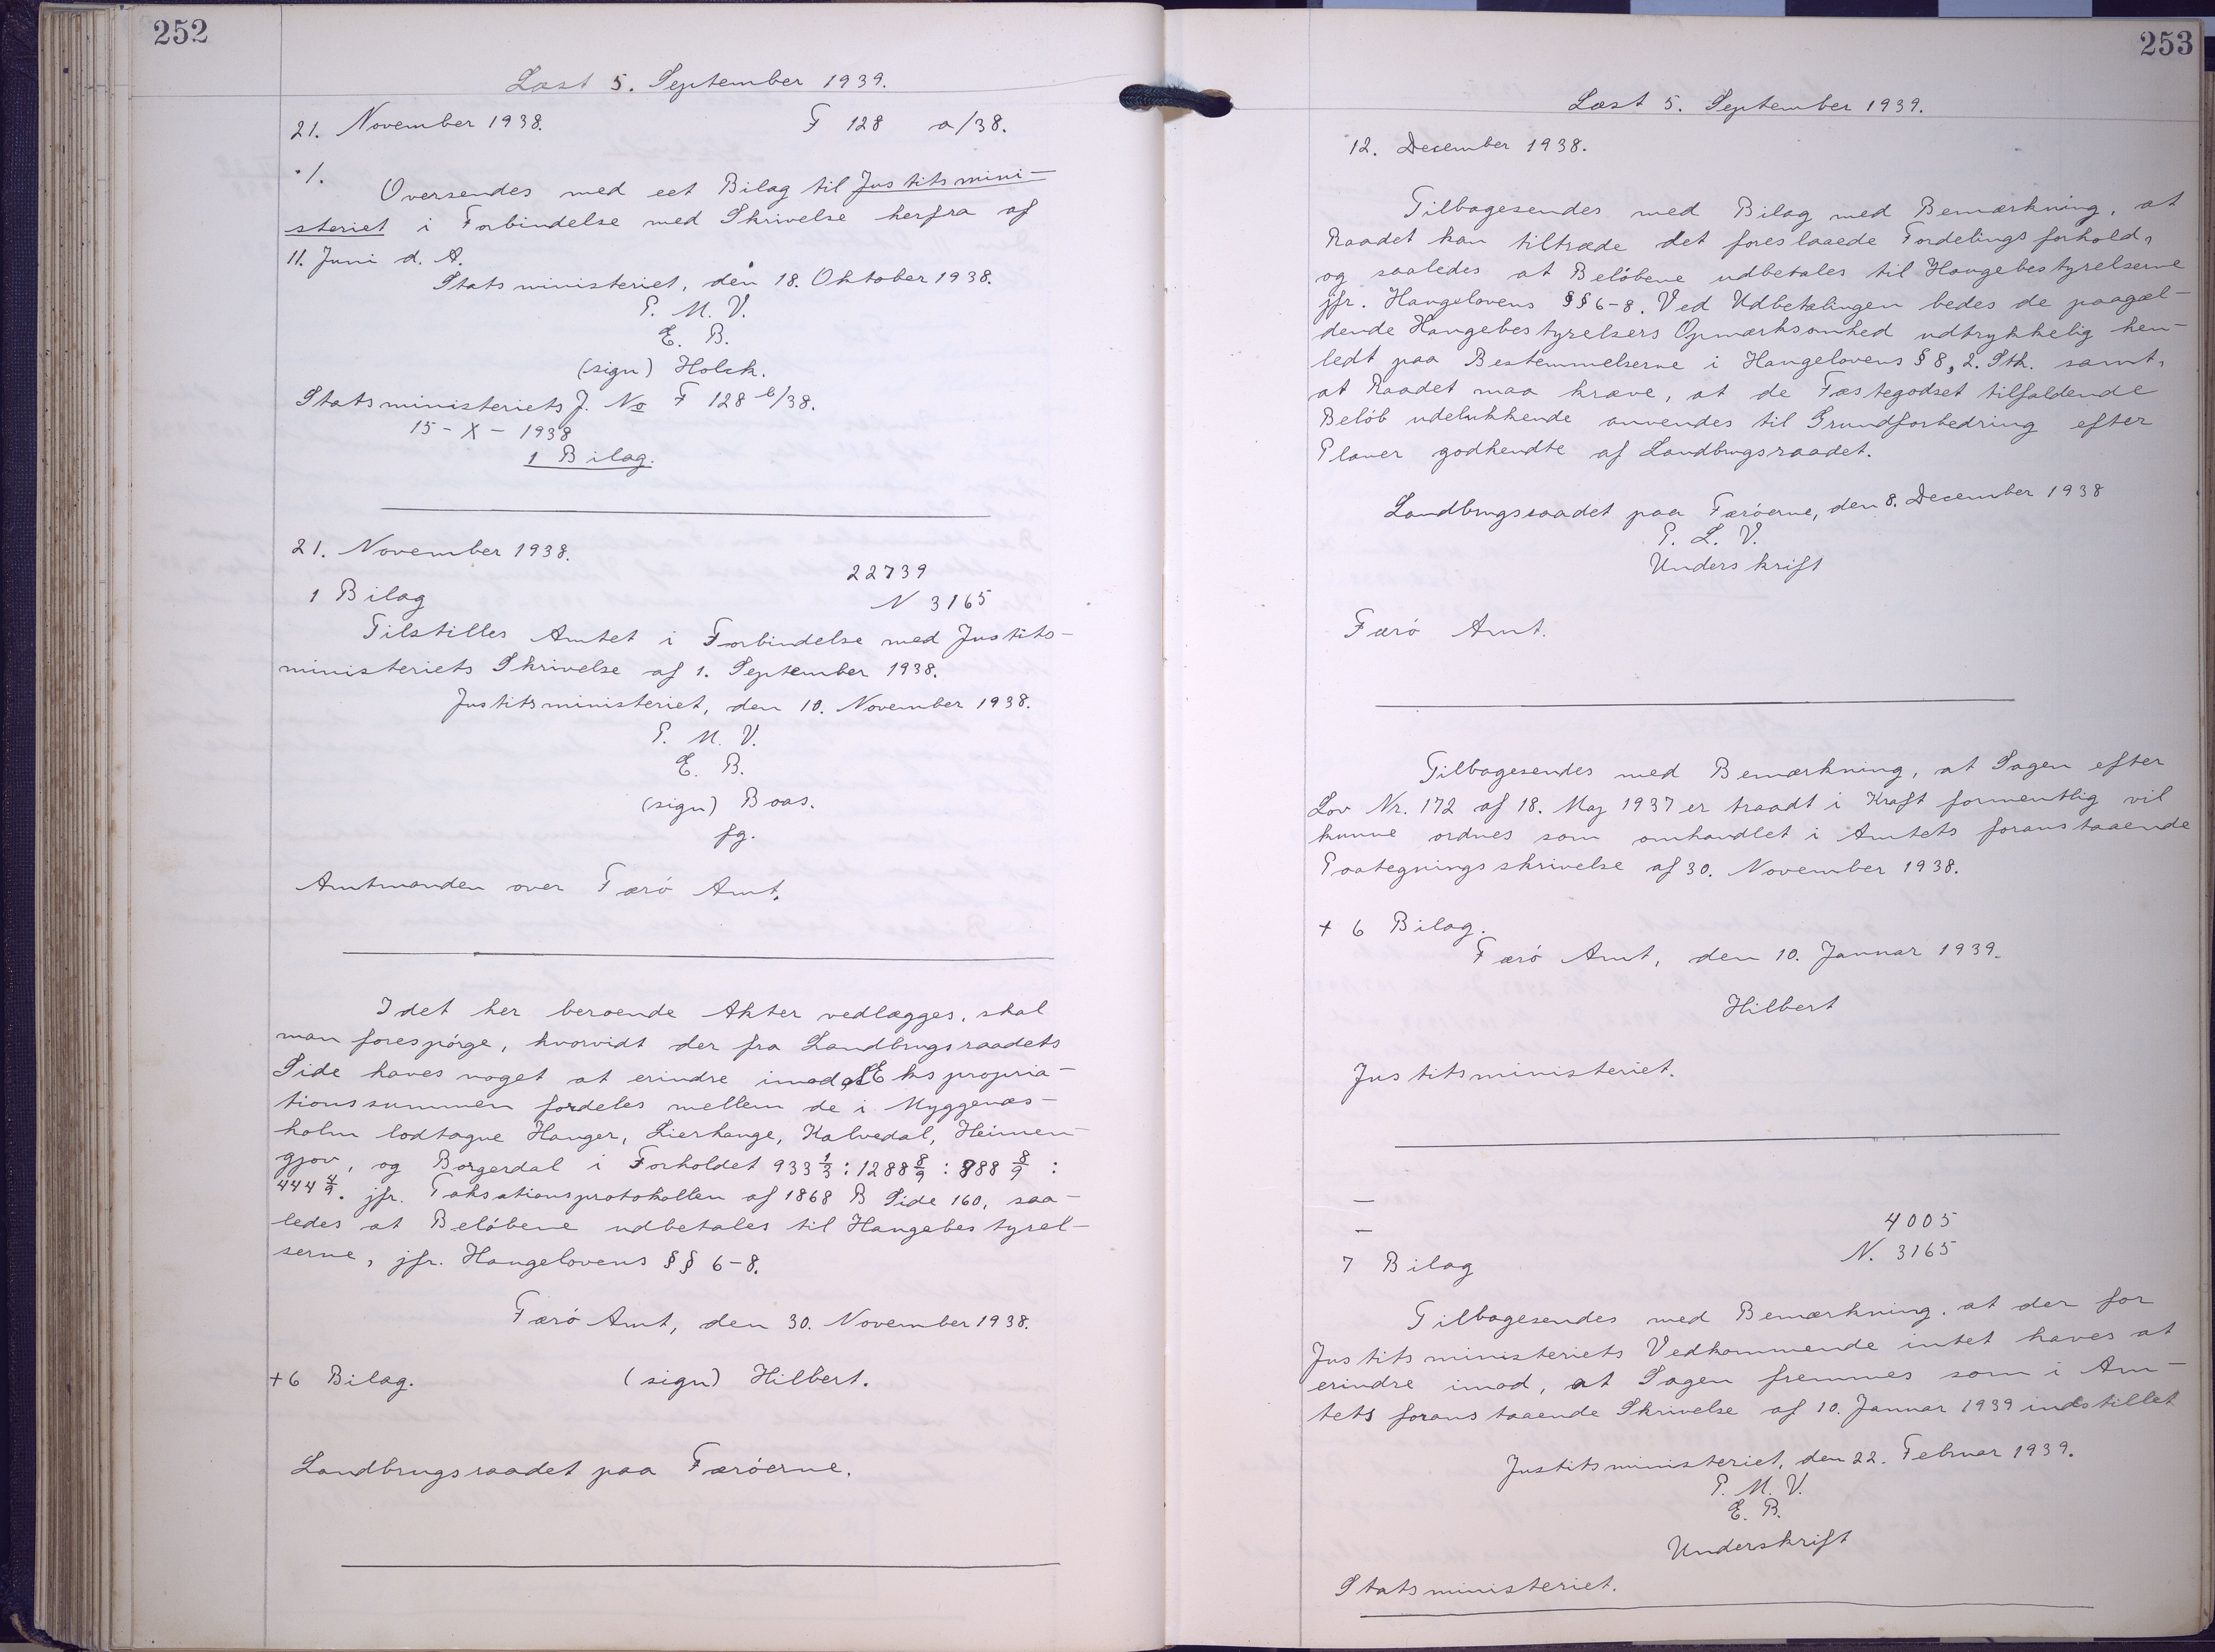 252
Læst 5. September 1939.
21. November 1938. F 128 a/38.
·/.
Oversendes med eet Bilag til Justitsmini-
steriet i Forbindelse med Skrivelse herfra af
11. Juni d. A.
Statsministeriet, den 18. Oktober 1938.
P. M. V.
E. B.
(sign) Holck.
Statsministeriets J. No F 128 b/38.
15 - X - 1938
1 Bilag.
21. November 1938.
22739
1 Bilag N 3165
Tilstilles Amtet i Forbindelse med Justits-
ministeriets Skrivelse af 1. September 1938.
Justitsministeriet, den 10. November 1938.
P. M. V.
E. B.
(sign) Boas.
fg.
Amtmanden over Færö Amt.
Idet her beroende Akter vedlægges, skal
man forespörge, hvorvidt der fra Landbrugsraadets
Side haves noget at erindre imod at Ekspropria-
tionssummen fordeles mellem de i Myggenæs-
holm lodtagne Hauger, Lierhauge, Kalvedal, Heimen-
gjov, og Borgerdal i Forholdet 933 1/3 : 1288 8/9 : 888 8/9 :
444 4/9. jfr. Taksationsprotokollen af 1868 B Side 160, saa-
ledes at Belöbene udbetales til Haugebestyrel-
serne, jfr. Haugelovens §§ 6-8.
Færö Amt, den 30. November 1938.
+6 Bilag. (sign) Hilbert.
Landbrugsraadet paa Færöerne.
253
Læst 5. September 1939.
12. December 1938.
Tilbagesendes med Bilag med Bemærkning, at
Raadet kan tiltræde det foreslaaede Fordelingsforhold,
og saaledes at Belöbene udbetales til Haugebestyrelserne
jfr. Haugelovens §§ 6-8. Ved Udbetalingen bedes de paagæl-
dende Haugebestyrelsers Opmærksomhed udtrykkelig hen-
ledt paa Bestemmelserne i Haugelovens § 8, 2. Stk. samt,
at Raadet maa kræve, at de Fæstegodset tilfaldende
Belöb udelukkende anvendes til Grundforbedring efter
Planer godkendte af Landbrugsraadet.
Landbrugsraadet paa Færöerne, den 8. December 1938
P. L. V.
Underskrift
Færö Amt.
Tilbagesendes med Bemærkning, at Sagen efter
Lov Nr. 172 af 18. Maj 1937 er traadt i Kraft formentlig vil
kunne ordnes som omhandlet i Amtets foranstaaende
Paategningsskrivelse af 30. November 1938.
+ 6 Bilag.
Færö Amt, den 10. Januar 1939.
Hilbert
Justitsministeriet.
—
— 4005
7 Bilag N. 3165
Tilbagesendes med Bemærkning, at der for
Justitsministeriets Vedkommende intet haves at
erindre imod, at Sagen fremmes som i Am-
tets foranstaaende Skrivelse af 10. Januar 1939 indstillet
Justitsministeriet, den 22. Februar 1939.
P. M. V.
E. B.
Underskrift
Statsministeriet.